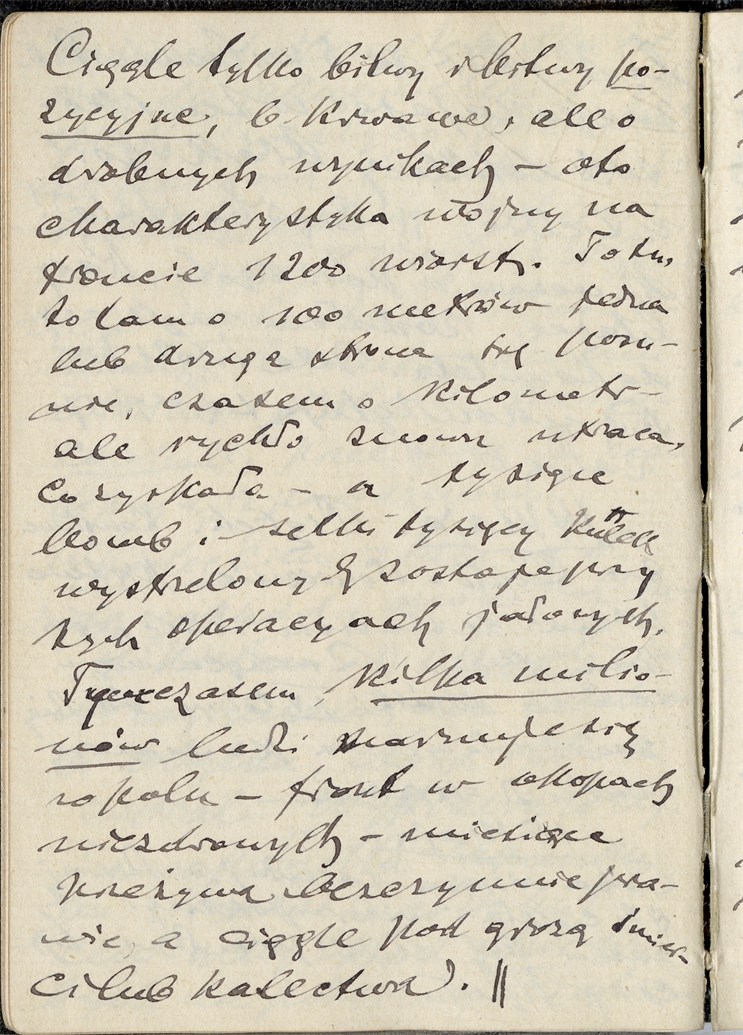 Ciągle tylko bitwy i bitwy po-
zycyjne, b. krwawe, ale o
drobnych wynikach – oto
charakterystyka wojny na
froncie 1200 wiorst. To tu,
to tam o 100 metrów jedna
lub druga strona się posu-
nie, czasem o kilometr –
ale rychło znowu utraca,
co zyskała – a tysiące
bomb i setki tysięcy kulek
wystrzelonych zostaje przy
tych operacyach jałowych.
Tymczasem, kilka milio-
nów ludzi marnuje się
w polu – front w okopach
niezdrowych – miesiące
przeżywa bezczynnie pra-
wie, a ciągle pod grozą śmier-
ci lub kalectwa). ||